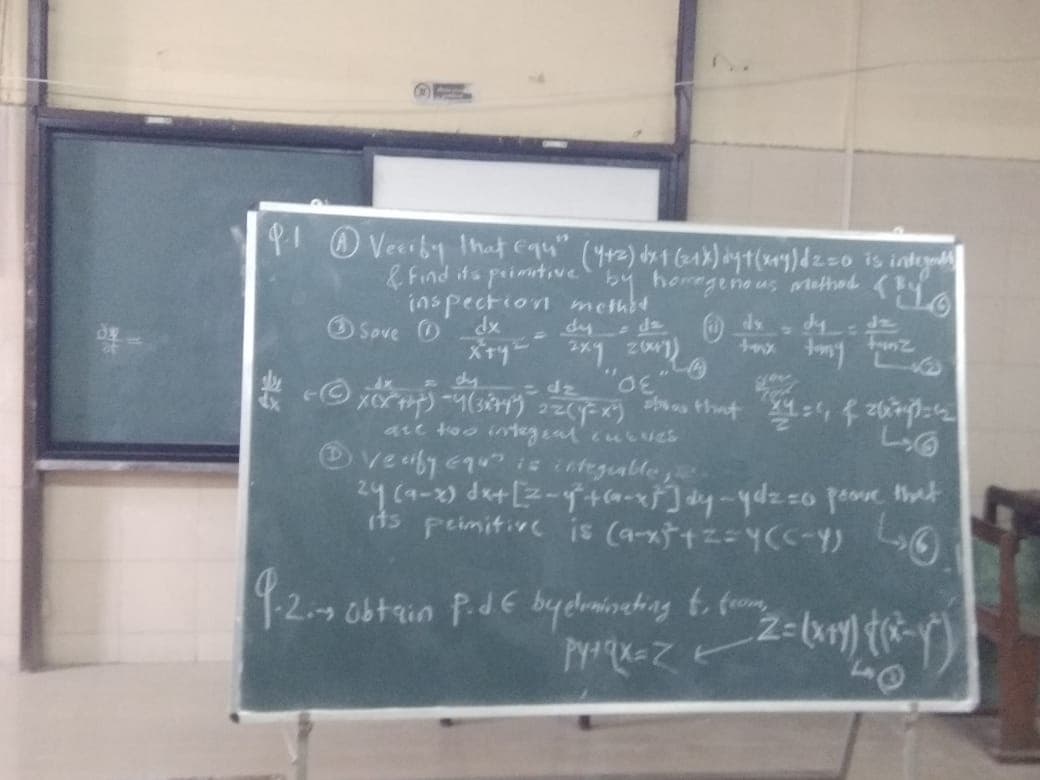 Q.1 Ⓐ Verify that Equⁿ (y+z) dx+(z+x)dy+(x+y)dz=0 is integrable
& find its primitive by homogenous method & By
inspection method ⑥
Ⓑ Save ① dx/(x²+y²) = dy/(2xy) = dz/(z(x+y)) ④ ⓘⓘ dx/tanx = dy/tany = dz/tanz ②
Ⓒ dx/(x(x²+y²)) = dy/(-y(3x²+y²)) = dz/(2z(y²-x²)) "OE" shows that xy/z=c₁ & z(x²+y²)=c₂
are too integral curves ⑥
Ⓓ Verify equⁿ is integrable,
2y(a-x) dx+[z-y²+(a-x)²]dy-ydz=0 prove that
its primitive is (a-x)²+z=y(c-y) ⑥
Q.2.→ Obtain P.d.E by eleminating f, from,
z=(x+y) f(x²-y²)
py+qx=z ← ③
dy/dx